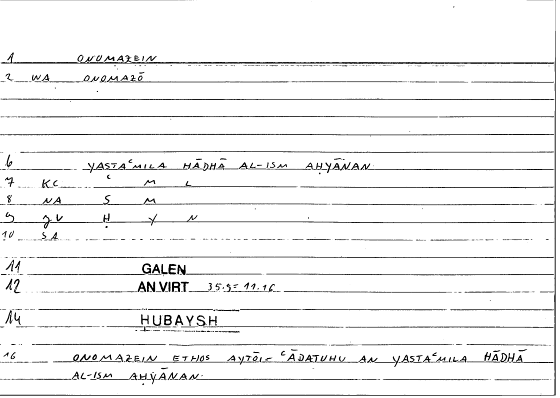 1 ONOMAZEIN
2 WA ONOMAZŌ
6 YASTAᶜMILA HĀDHĀ AL-ISM AḤYĀNAN
7 KC ᶜ M L
8 NA S M
9 JV Ḥ Y N
10 SA
11 GALEN
12 AN VIRT 35.9 = 11.16
14 HUBAYSH
16 ONOMAZEIN ETHOS AYTŌI = ᶜĀDATUHU AN YASTAᶜMILA HĀDHĀ
AL-ISM AḤYĀNAN.